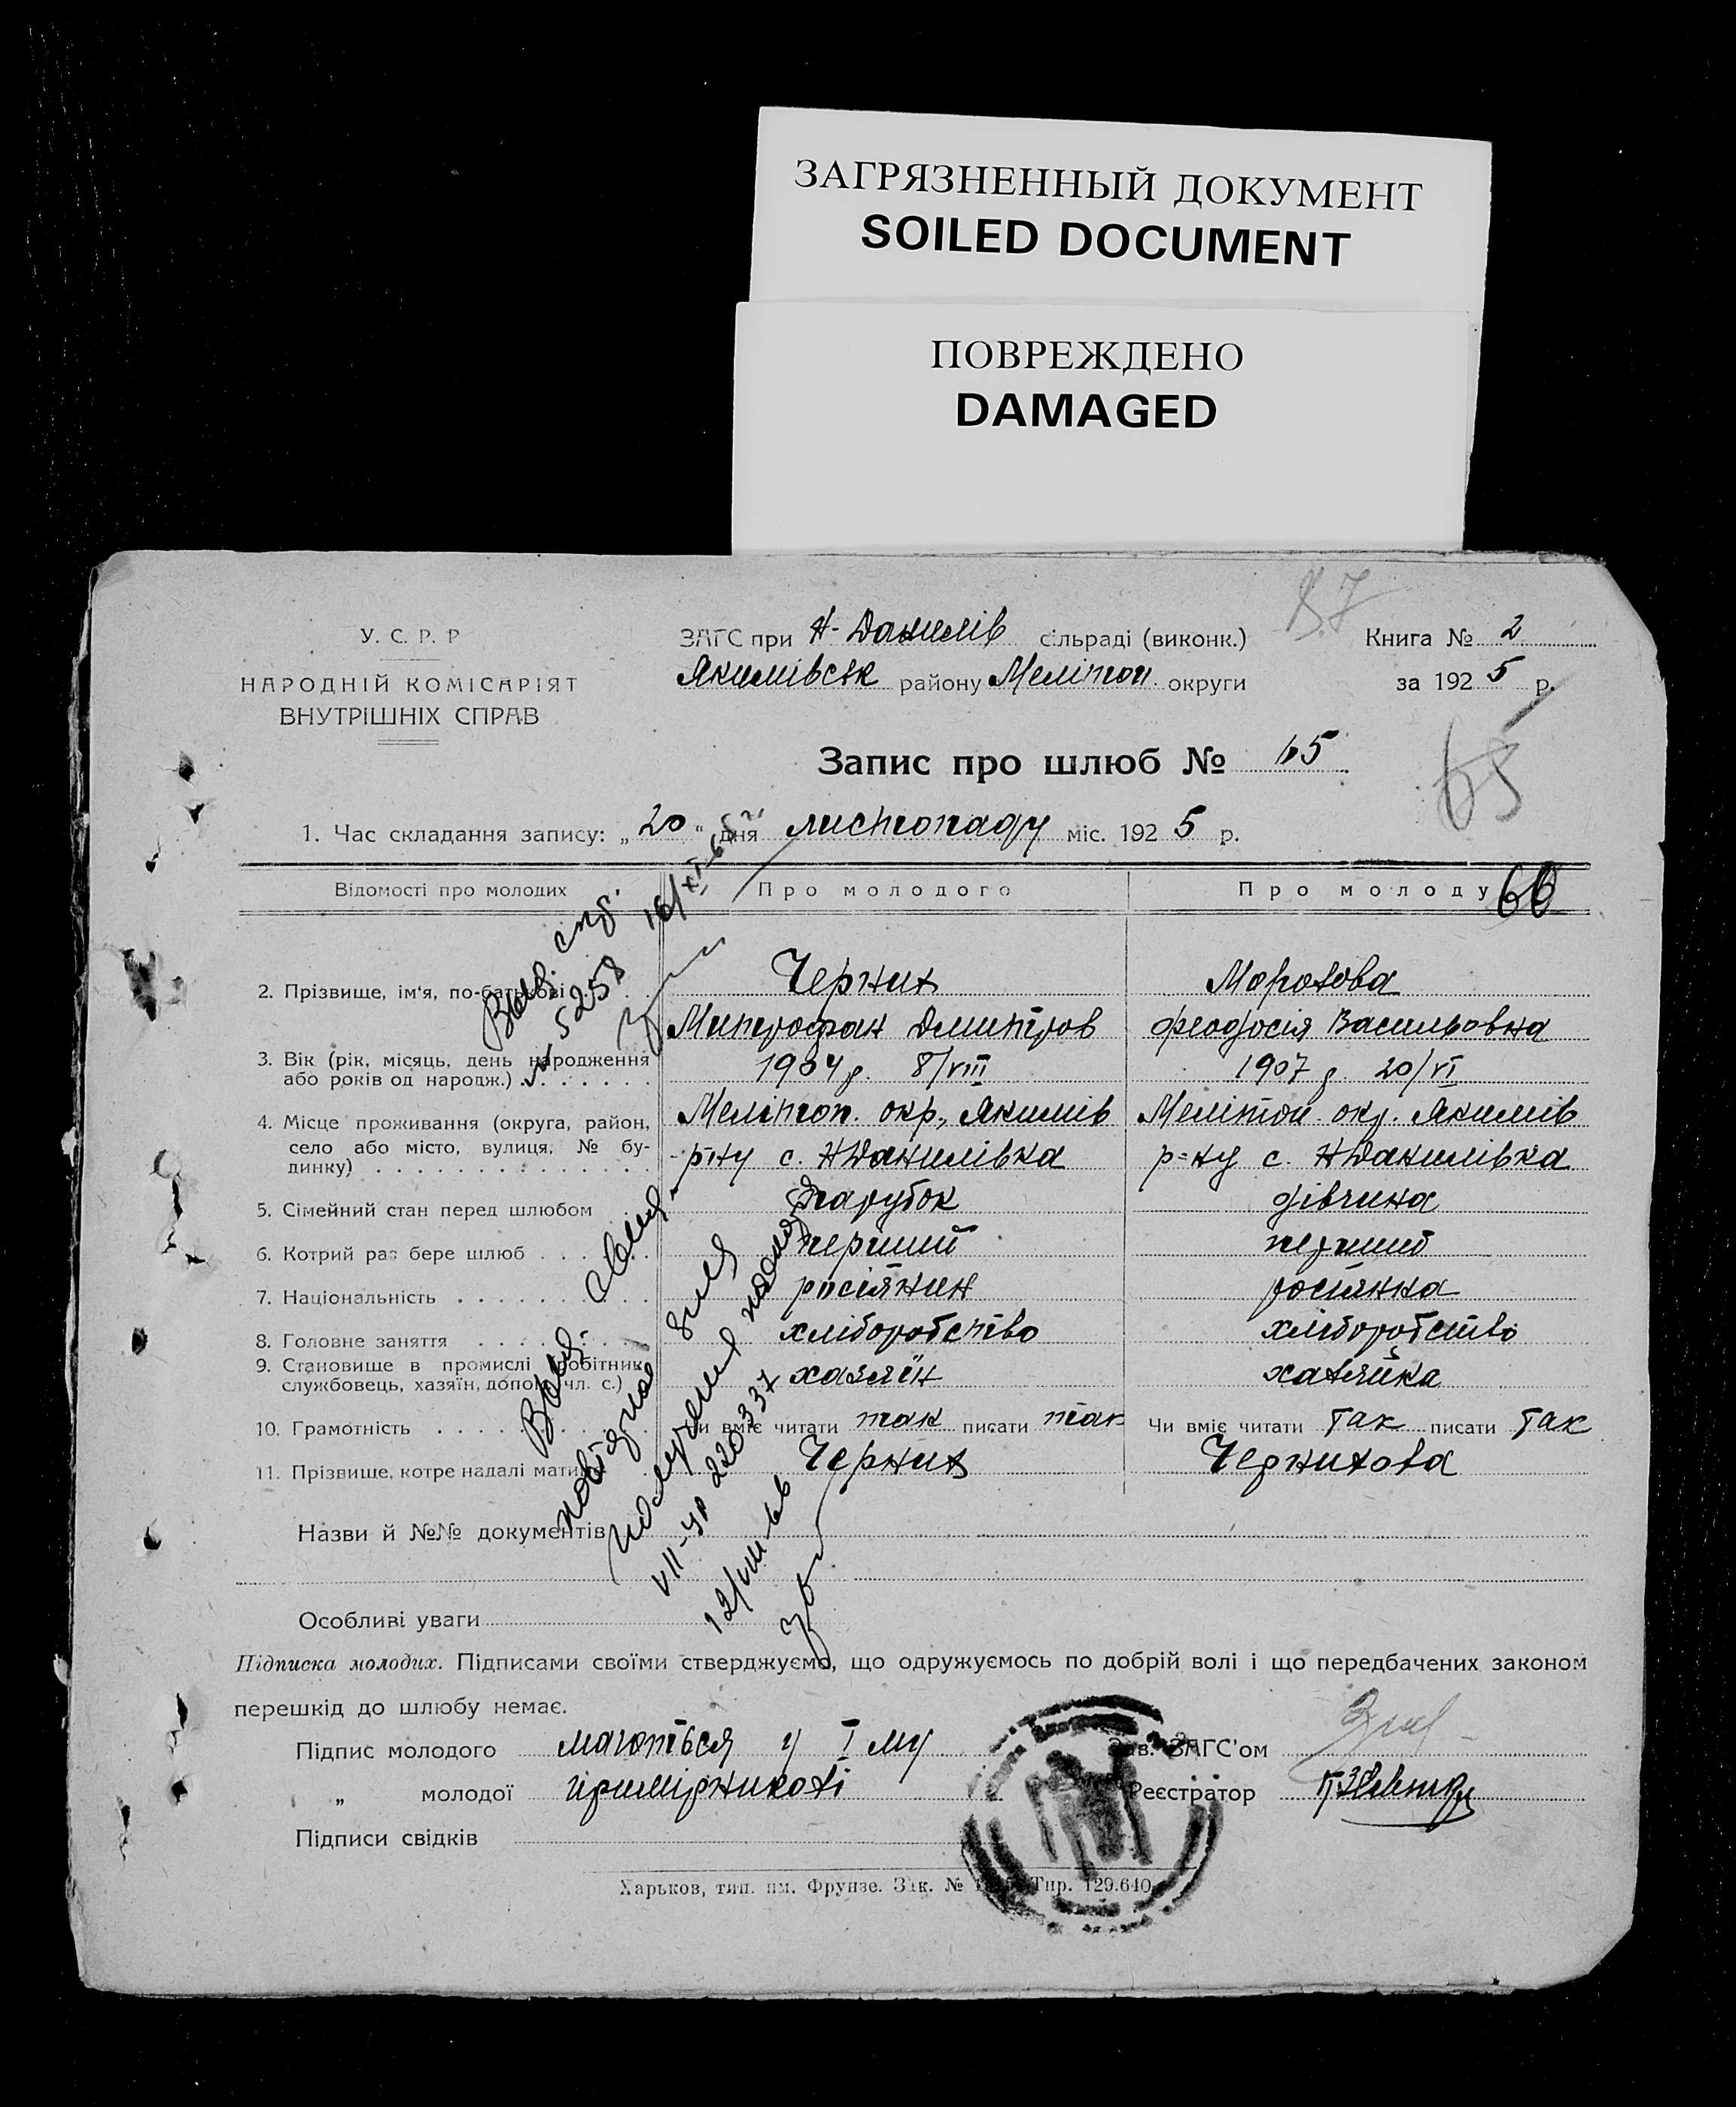 ЗАГРЯЗНЕННЫЙ ДОКУМЕНТ
SOILED DOCUMENT
ПОВРЕЖДЕНО
DAMAGED
У. С. Р. Р
НАРОДНІЙ КОМІСАРІЯТ
ВНУТРІШНІХ СПРАВ
87
ЗАГС при Н-Данилів сільраді (виконк.)
Якимівськ району Меліtоп. округи
Книга № 2
за 1925 р.
Запис про шлюб № 65
65
1. Час складання запису: „20“ дня листопаду міс. 1925 р.
Відомості про молодих Про молодого Про молоду 66
2. Прізвище, ім'я, по-батькові Черних Морозова
Митрофан Дмитров Феодосія Васильовна
3. Вік (рік, місяць, день народження
або років од народж.) 1904 р. 8/VIII 1907 р. 20/VI
4. Місце проживання (округа, район, Меліtоп. окр., Якимів Меліtоп. окр. Якимів
село або місто, вулиця, № бу-
динку) р-ну с. НДанилівка р-ну с. НДанилівка
5. Сімейний стан перед шлюбом парубок дівчина
6. Котрий раз бере шлюб перший перший
7. Національність росіянин росіянка
8. Головне заняття хліборобство хліборобство
9. Становище в промислі (робітник,
службовець, хазяїн, допом. чл. с.) хазяїн хазяйка
10. Грамотність Чи вміє читати так писати так Чи вміє читати так писати так
11. Прізвище, котре надалі матиме Черних Чернихова
Назви й №№ документів
Особливі уваги
Выд. спр.
№ 5258
16/XI-65 г.
Выд. повторное свид.
VII-ЯР 220337
12/VIII-66
Підписка молодих. Підписами своїми стверджуємо, що одружуємось по добрій волі і що передбачених законом
перешкід до шлюбу немає.
Підпис молодого маються у I му
„ молодої примірникові
Підписи свідків
Зав. ЗАГС'ом
Реєстратор
Харьков, тип. им. Фрунзе. Зак. № Тир. 129.640